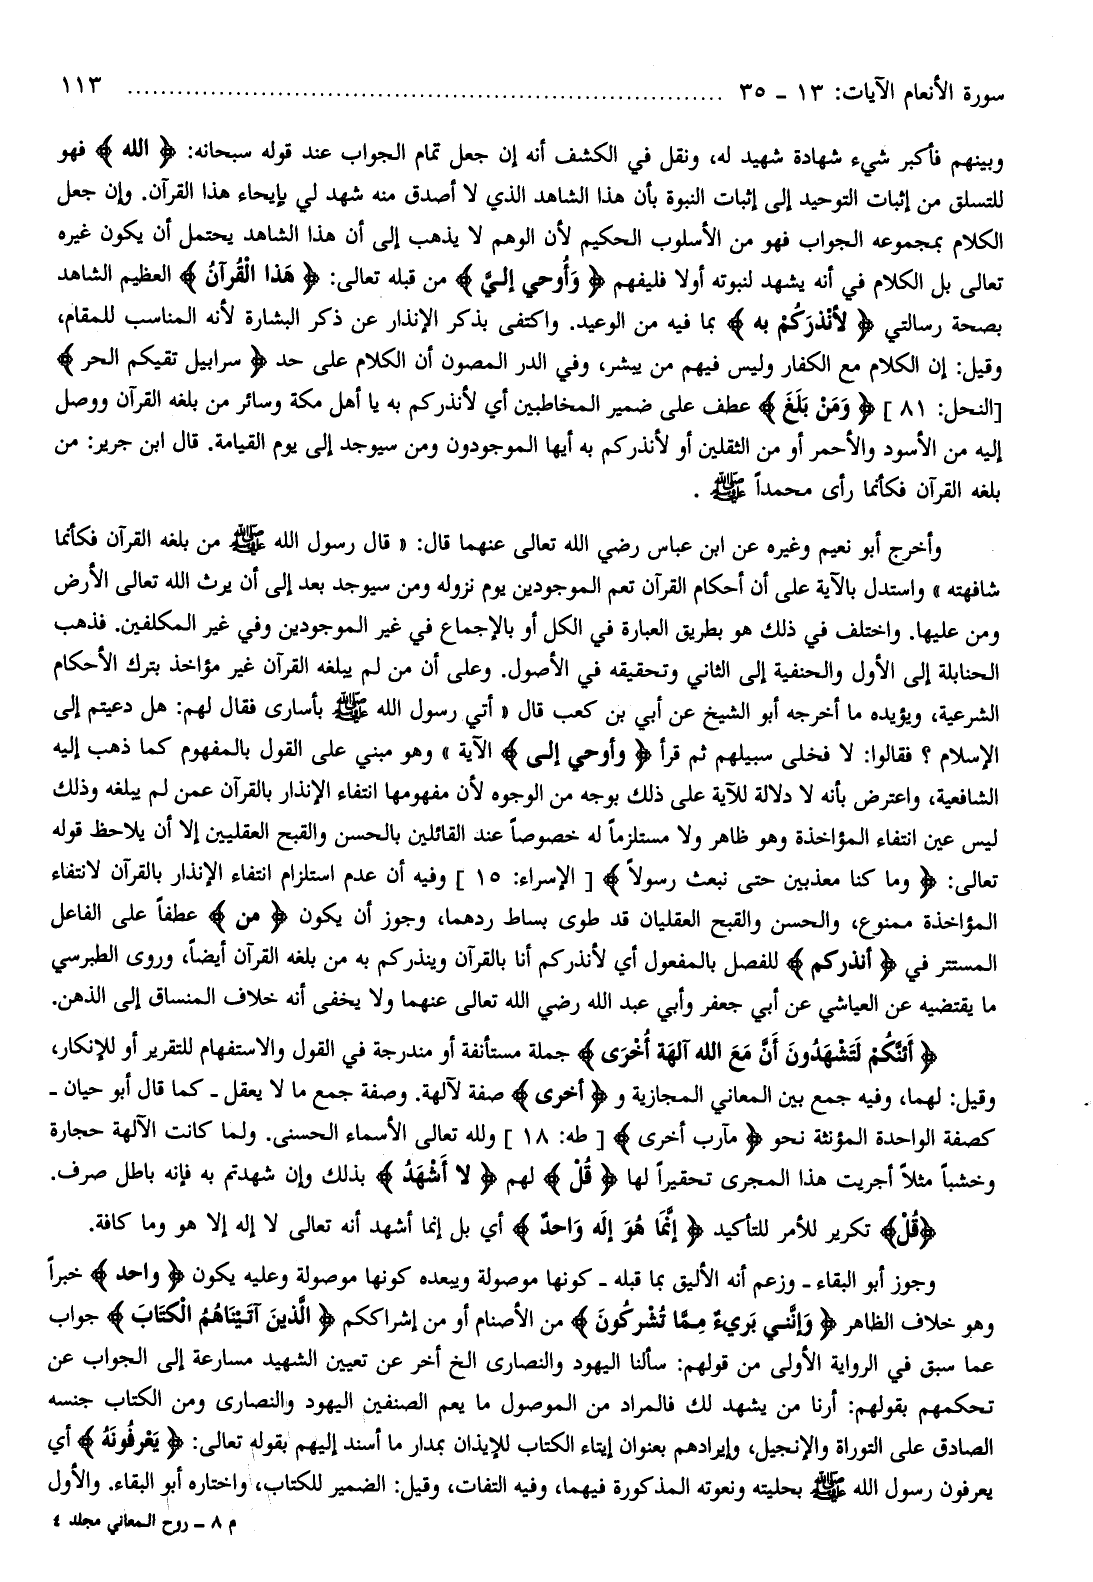 سورة الأنعام الآيات: ١٣ ـ ٣٥ .......................................................................... ١١٣
وبينهم فأكبر شيء شهادة شهيد له، ونقل في الكشف أنه إن جعل تمام الجواب عند قوله سبحانه: ﴿ الله ﴾ فهو
للتسلق من إثبات التوحيد إلى إثبات النبوة بأن هذا الشاهد الذي لا أصدق منه شهد لي بإيحاء هذا القرآن. وإن جعل
الكلام بمجموعه الجواب فهو من الأسلوب الحكيم لأن الوهم لا يذهب إلى أن هذا الشاهد يحتمل أن يكون غيره
تعالى بل الكلام في أنه يشهد لنبوته أولا فليفهم ﴿ وَأُوحي إليَّ ﴾ من قبله تعالى: ﴿ هَذا الْقُرآنُ ﴾ العظيم الشاهد
بصحة رسالتي ﴿ لأنْذرَكُمْ به ﴾ بما فيه من الوعيد. واكتفى بذكر الإنذار عن ذكر البشارة لأنه المناسب للمقام،
وقيل: إن الكلام مع الكفار وليس فيهم من يبشر، وفي الدر المصون أن الكلام على حد ﴿ سرابيل تقيكم الحر ﴾
[النحل: ٨١ ] ﴿ وَمَنْ بَلَغَ ﴾ عطف على ضمير المخاطبين أي لأنذركم به يا أهل مكة وسائر من بلغه القرآن ووصل
إليه من الأسود والأحمر أو من الثقلين أو لأنذركم به أيها الموجودون ومن سيوجد إلى يوم القيامة. قال ابن جرير: من
بلغه القرآن فكأنما رأى محمداً ﷺ .
وأخرج أبو نعيم وغيره عن ابن عباس رضي الله تعالى عنهما قال: « قال رسول الله ﷺ من بلغه القرآن فكأنما
شافهته » واستدل بالآية على أن أحكام القرآن تعم الموجودين يوم نزوله ومن سيوجد بعد إلى أن يرث الله تعالى الأرض
ومن عليها. واختلف في ذلك هو بطريق العبارة في الكل أو بالإجماع في غير الموجودين وفي غير المكلفين. فذهب
الحنابلة إلى الأول والحنفية إلى الثاني وتحقيقه في الأصول. وعلى أن من لم يبلغه القرآن غير مؤاخذ بترك الأحكام
الشرعية، ويؤيده ما أخرجه أبو الشيخ عن أبي بن كعب قال « أتي رسول الله ﷺ بأسارى فقال لهم: هل دعيتم إلى
الإسلام ؟ فقالوا: لا فخلى سبيلهم ثم قرأ ﴿ وأوحي إلى ﴾ الآية » وهو مبني على القول بالمفهوم كما ذهب إليه
الشافعية، واعترض بأنه لا دلالة للآية على ذلك بوجه من الوجوه لأن مفهومها انتفاء الإنذار بالقرآن عمن لم يبلغه وذلك
ليس عين انتفاء المؤاخذة وهو ظاهر ولا مستلزماً له خصوصاً عند القائلين بالحسن والقبح العقليين إلا أن يلاحظ قوله
تعالى: ﴿ وما كنا معذبين حتى نبعث رسولاً ﴾ [ الإسراء: ١٥ ] وفيه أن عدم استلزام انتفاء الإنذار بالقرآن لانتفاء
المؤاخذة ممنوع، والحسن والقبح العقليان قد طوى بساط ردهما، وجوز أن يكون ﴿ من ﴾ عطفاً على الفاعل
المستتر في ﴿ أنذركم ﴾ للفصل بالمفعول أي لأنذركم أنا بالقرآن وينذركم به من بلغه القرآن أيضاً، وروى الطبرسي
ما يقتضيه عن العياشي عن أبي جعفر وأبي عبد الله رضي الله تعالى عنهما ولا يخفى أنه خلاف المنساق إلى الذهن.
﴿ أَئنَّكُمْ لَتَشْهَدُونَ أَنَّ مَعَ الله آلهَة أُخْرَى ﴾ جملة مستأنفة أو مندرجة في القول والاستفهام للتقرير أو للإنكار،
وقيل: لهما، وفيه جمع بين المعاني المجازية و ﴿ أخرى ﴾ صفة لآلهة. وصفة جمع ما لا يعقل ـ كما قال أبو حيان ـ
كصفة الواحدة المؤنثة نحو ﴿ مآرب أخرى ﴾ [ طه: ١٨ ] ولله تعالى الأسماء الحسنى. ولما كانت الآلهة حجارة
وخشباً مثلاً أجريت هذا المجرى تحقيراً لها ﴿ قُلْ ﴾ لهم ﴿ لا أَشْهَدُ ﴾ بذلك وإن شهدتم به فإنه باطل صرف.
﴿قُلْ﴾ تكرير للأمر للتأكيد ﴿ إنَّمَا هُوَ إلَه وَاحدٌ ﴾ أي بل إنما أشهد أنه تعالى لا إله إلا هو وما كافة.
وجوز أبو البقاء ـ وزعم أنه الأليق بما قبله ـ كونها موصولة ويبعده كونها موصولة وعليه يكون ﴿ واحد ﴾ خبراً
وهو خلاف الظاهر ﴿ وَإنَّني بَريءٌ ممَّا تُشْركُونَ ﴾ من الأصنام أو من إشراككم ﴿ الَّذينَ آتَيْنَاهُمُ الْكتَابَ ﴾ جواب
عما سبق في الرواية الأولى من قولهم: سألنا اليهود والنصارى الخ أخر عن تعيين الشهيد مسارعة إلى الجواب عن
تحكمهم بقولهم: أرنا من يشهد لك فالمراد من الموصول ما يعم الصنفين اليهود والنصارى ومن الكتاب جنسه
الصادق على التوراة والإنجيل، وإيرادهم بعنوان إيتاء الكتاب للإيذان بمدار ما أسند إليهم بقوله تعالى: ﴿ يَعْرفُونَهُ ﴾ أي
يعرفون رسول الله ﷺ بحليته ونعوته المذكورة فيهما، وفيه التفات، وقيل: الضمير للكتاب، واختاره أبو البقاء. والأول
م ٨ ـ روح المعاني مجلد ٤